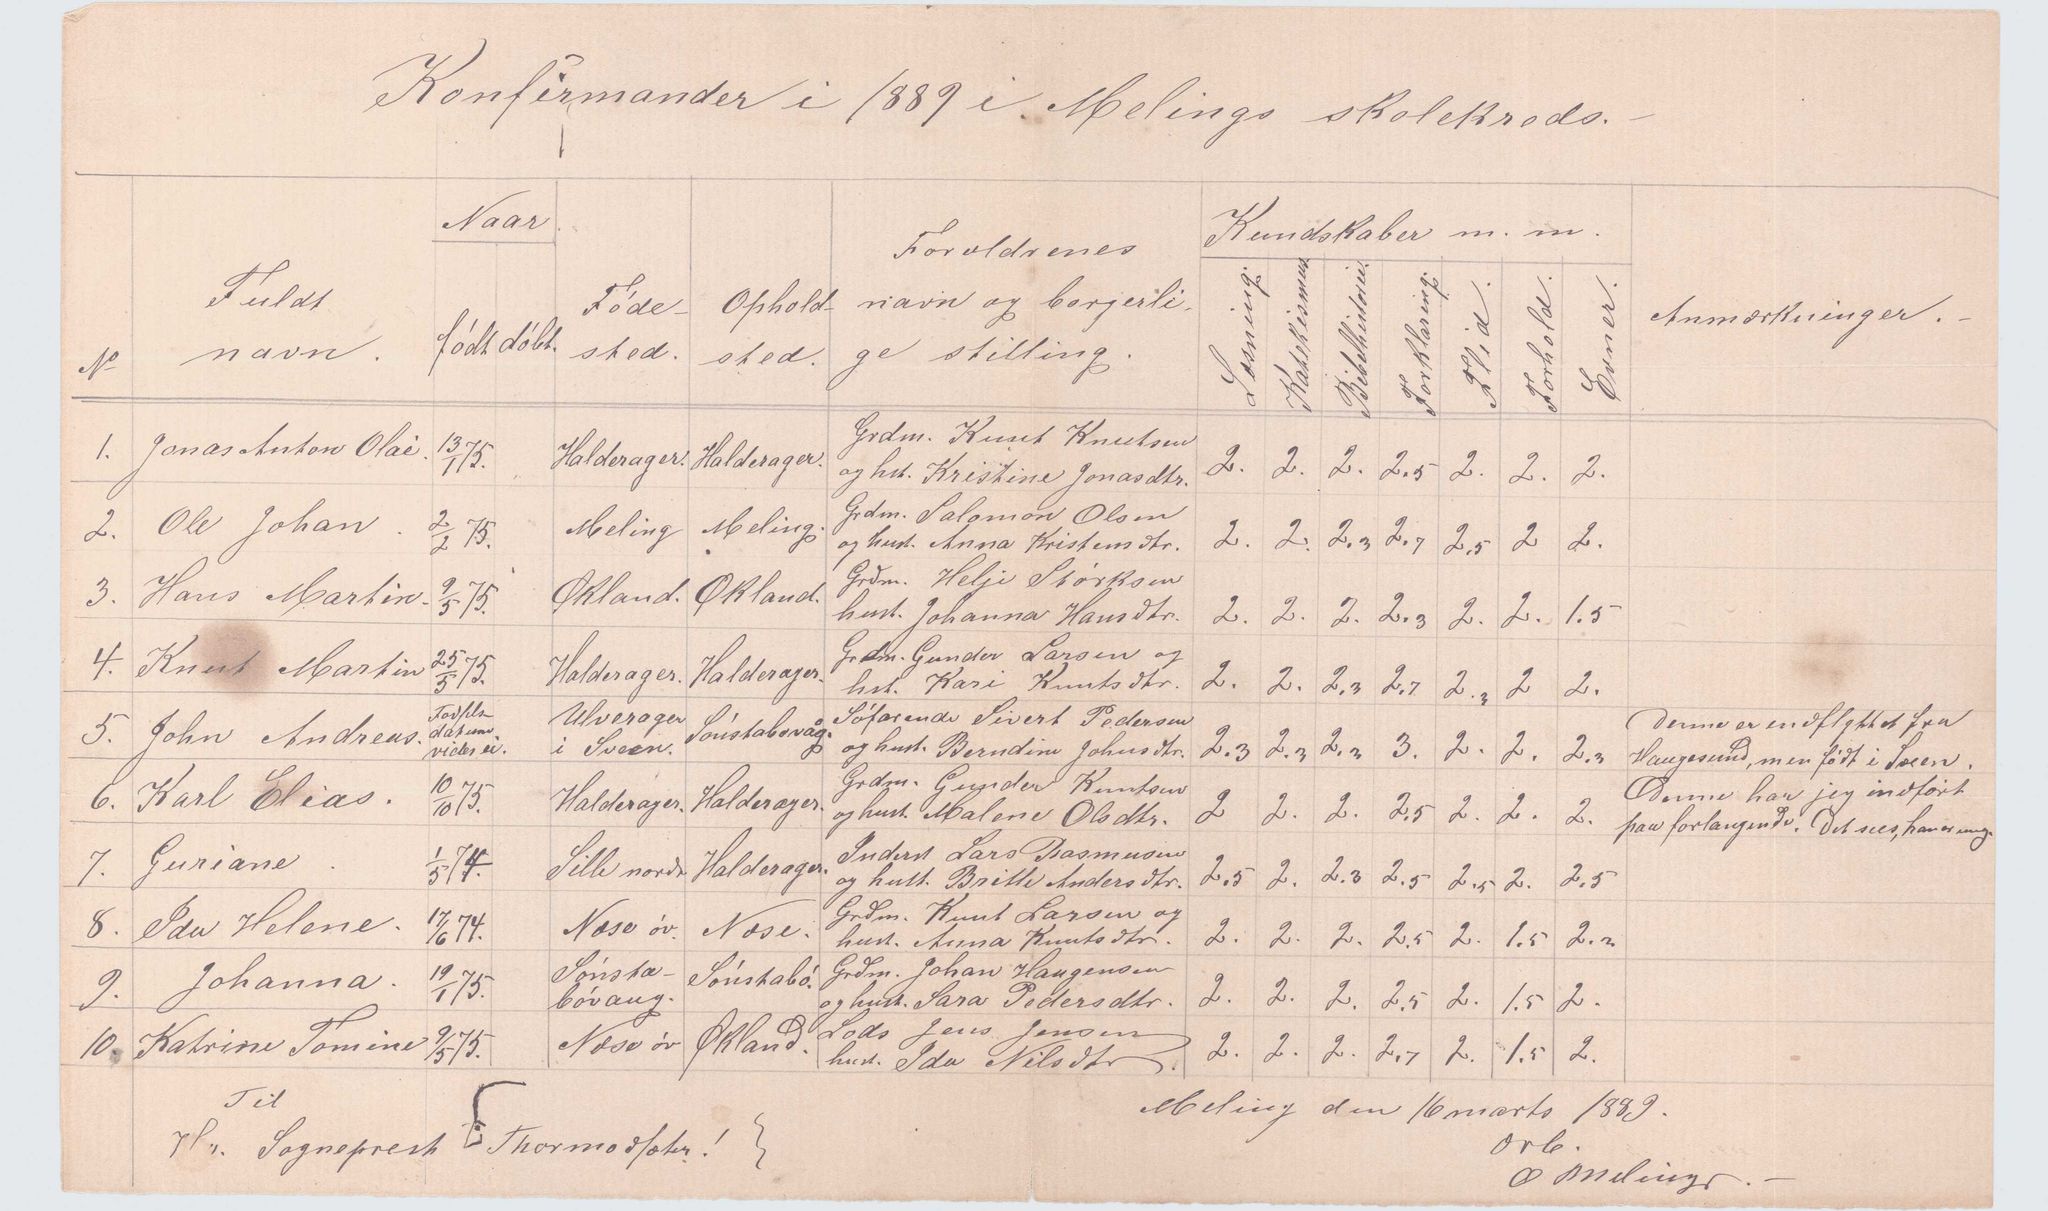 Konfirmander i 1889 i Melings skolekreds. -
No
Fuldt
navn.
Naar
født døbt.
Føde-
sted.
Ophold-
sted.
Forældrenes
navn og borgerli-
ge stilling.
Kundskaber m. m.
Læsning.
Katekismus
Bibelhistorie.
Forklaring.
Flid.
Forhold.
Evner.
Anmærkninger. -
1. Jonas Anton Olai. 13/1 75. Halderager. Halderager. Grdm. Knut Knutsen
og hst. Kristine Jonasdtr. 2. 2. 2. 2.5 2. 2. 2.
2. Ole Johan. 2/2 75. Meling Meling. Grdm. Salomon Olsen
og hust. Anna Kristensdtr. 2. 2. 2.3 2.7 2.5 2 2.
3. Hans Martin. 9/5 75. Økland. Økland. Grdm. Helje Størksen
hust. Johanna Hansdtr. 2. 2. 2. 2.3 2. 2. 1.5
4. Knut Martin 25/5 75. Halderager. Halderager. Grdm. Gunder Larsen og
hst. Kari Knutsdtr. 2. 2. 2.3 2.7 2.3 2 2.
5. John Andreas. Fødsels
datum
vides ei. Ulverager
i Sveen. Sønstabøvåg. Søfarende Sivert Pedersen
og hust. Berndine Johnsdtr. 2.3 2.3 2.3 3. 2. 2. 2.3 Denne er indflyttet fra
Haugesund, men født i Sveen.
6. Karl Elias. 10/10 75. Halderager. Halderager. Grdm. Gunder Knutsen
og hust. Malene Olsdtr. 2 2. 2. 2.5 2. 2. 2. Denne har jeg indført
paa forlangende. Det sees, han er ung.
7. Guriane. 1/5 74. Sille nordr Halderager. Inderst Lars Rasmusen
og hust. Britte Andersdtr. 2.5 2. 2.3 2.5 2.5 2. 2.5
8. Ida Helene. 17/6 74. Næse øv. Næse. Grdm. Knut Larsen og
hust. Anna Knutsdtr. 2. 2. 2. 2.5 2. 1.5 2.2
9. Johanna. 19/1 75. Sønsta-
bøvaag. Sønstabø. Grdm. Johan Haugensen
og hust. Sara Pedersdtr. 2. 2. 2. 2.5 2. 1.5 2.
10. Katrine Tomine 9/5 75. Næse øv Økland. Lods Jens Jensen
hust. Ida Nilsdtr. 2. 2. 2. 2.7 2. 1.5 2.
Til
Hr. Sogneprest Thormodsæter!
Meling den 16 marts 1889.
Ærb.
O Meling. -